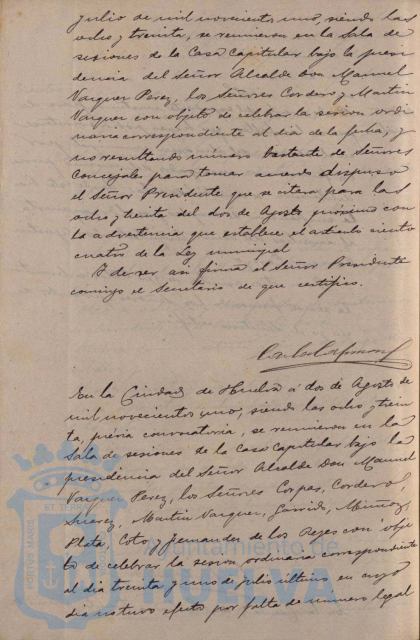 julio de mil novecientos uno, siendo las
ocho y treinta, se reunieron en la Sala de
sesiones de la Casa Capitular bajo la presi
dencia del Señor Alcalde Don Manuel
Vazquez Perez, los Señores Cordero y Martin
Vazquez con objeto de celebrar la sesion ordi
naria correspondiente al dia de la fecha, y
no resultando número bastante de Señores
Concejales para tomar acuerdo dispuso
el Señor Presidente que se citara para las
ocho y treinta del dos de Agosto próximo con
la advertencia que establece el articulo ciento
cuatro de la Ley municipal
Y de ser asi firma el Señor Presidente
conmigo el Secretario de que certifico.
En la Ciudad de Huelva á dos de Agosto de
mil novecientos uno, siendo las ocho y trein
ta, prévia convocatoria, se reunieron en la
Sala de sesiones de la Casa Capitular bajo la
presidencia del Señor Alcalde Don Manuel
Vazquez Perez, los Señores Corpas, Cordero,
Suarez, Martin Vazquez, Garrido, Muñoz,
Plata, Coto, y Fernandez de los Reyes con obje
to de celebrar la sesion ordinaria correspondiente
al dia treinta y uno de julio último en cuyo
dia no tuvo efecto por falta de número legal
PORTUS MARIS ET TERRAE
Ayuntamiento de
HUELVA